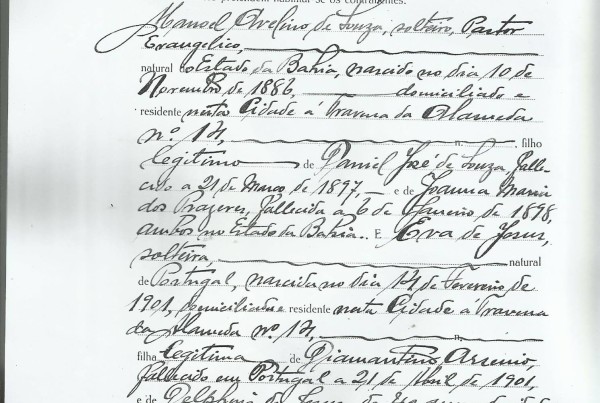 habilitar se os contratantes.
Manoel Avelino de Souza, solteiro, Pastor
Evangelico,
natural do Estado da Bahia, nascido no dia 10 de
Novembro de 1886, domiciliado e
residente nesta Cidade á Travessa da Alameda
nº. 14, n. filho
legitimo de Daniel José de Souza, falle-
cido a 21 de Março de 1897, e de Joanna Maria
dos Prazeres, fallecida a 6 de Janeiro de 1898,
ambos no Estado da Bahia. E Eva de Jesus,
solteira, natural
de Portugal, nascida no dia 14 de Fevereiro de
1901, domiciliada e residente nesta Cidade á Travessa
da Alameda nº. 14, n.
filha legitima de Diamantino Arsenio,
fallecido em Portugal a 21 de Abril de 1901,
e de Delphina de Jesus,